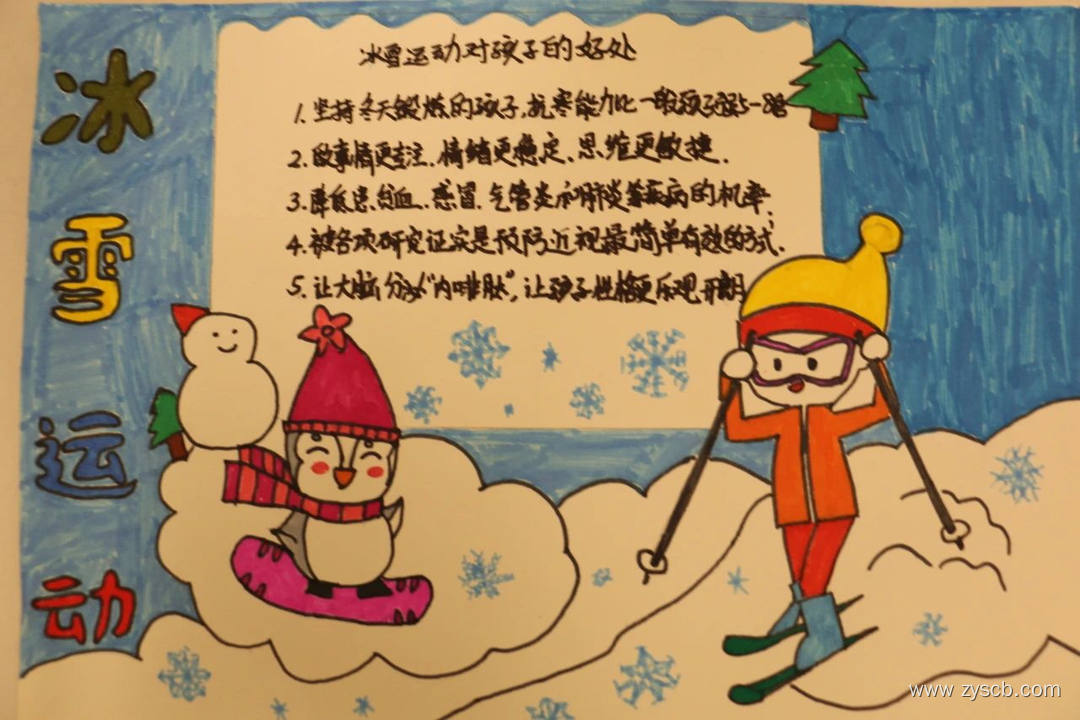 冰雪运动
冰雪运动对孩子的好处
1. 坚持冬天锻炼的孩子,抗寒能力比一般孩子强8-12倍
2. 做事情更专注、情绪更稳定、思维更敏捷.
3. 降低患贫血、感冒、气管炎和肺炎等疾病的机率;
4. 被各项研究证实是预防近视最简单有效的方式.
5. 让大脑分泌“内啡肽”,让孩子性格更乐观开朗
www.zyscb.com